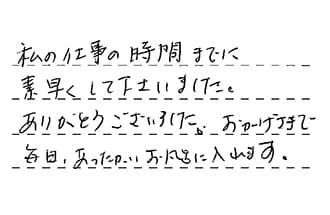 私の仕事の時間までに
素早くして下さいました。
ありがとうございました。おかげさまで
毎日、あったかいお風呂に入れます。